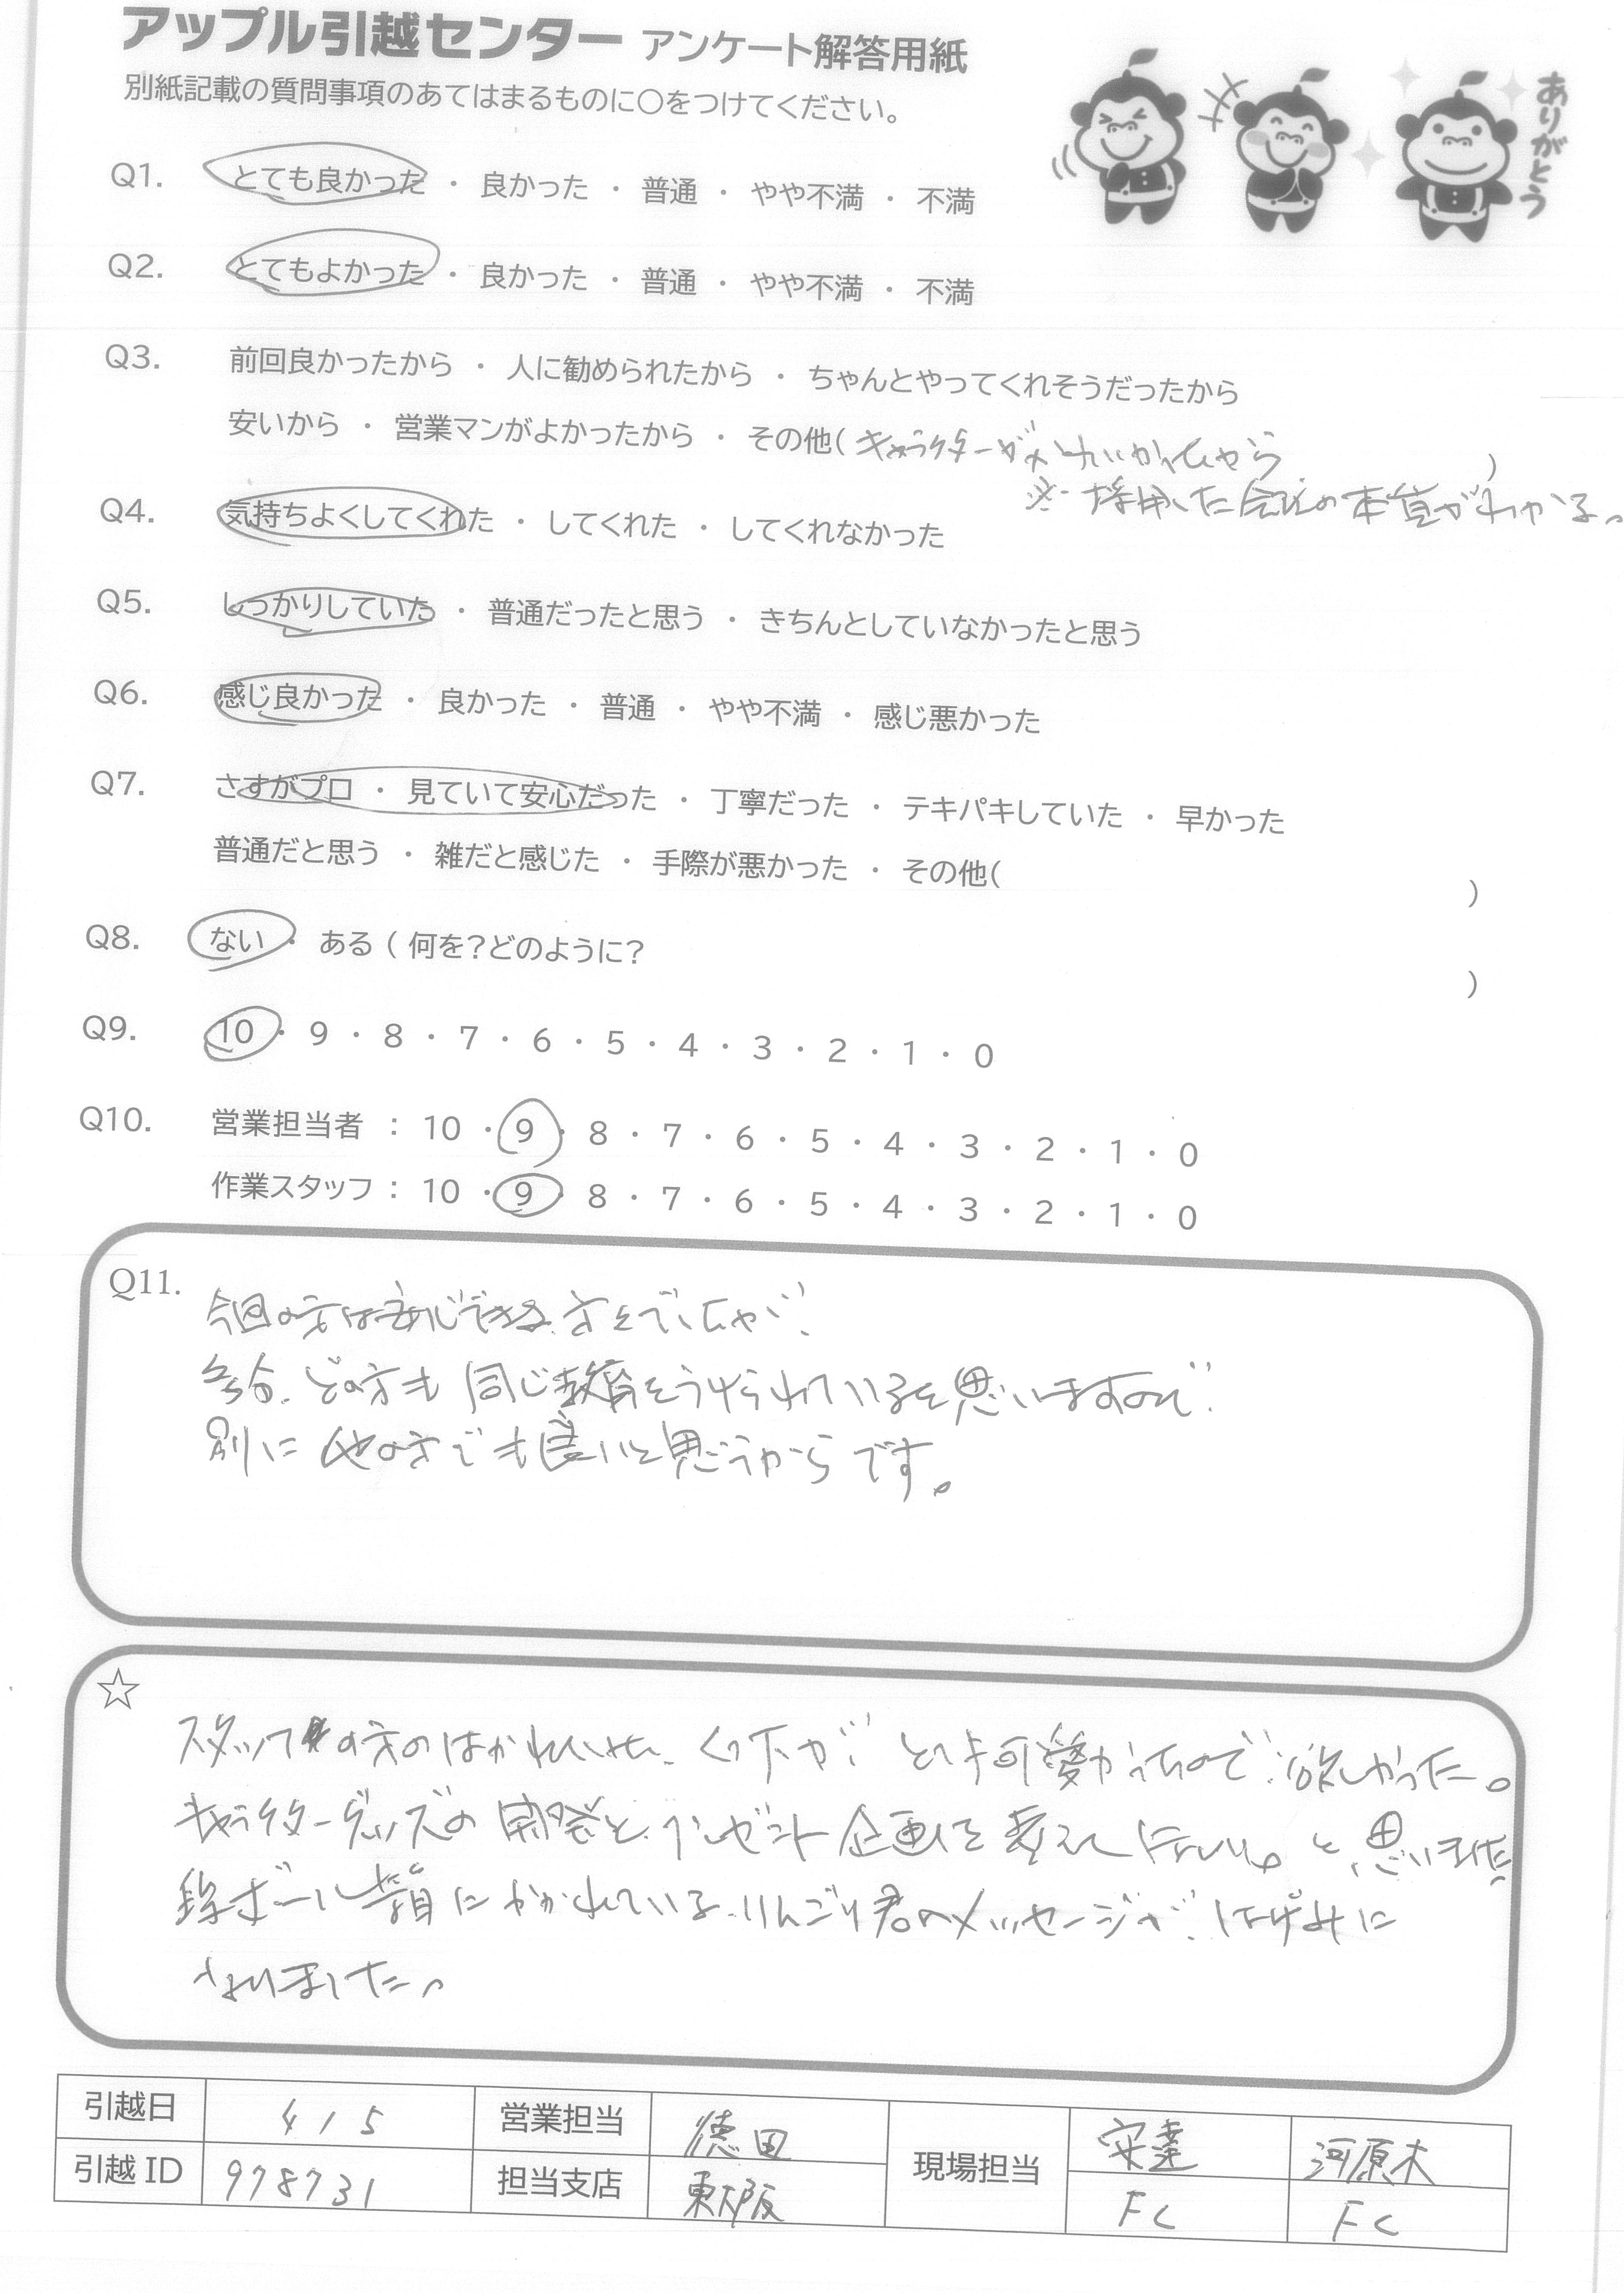 アップル引越センター アンケート解答用紙
別紙記載の質問事項のあてはまるものに○をつけてください。
ありがとう
Q1. とても良かった ・ 良かった ・ 普通 ・ やや不満 ・ 不満
Q2. とてもよかった ・ 良かった ・ 普通 ・ やや不満 ・ 不満
Q3. 前回良かったから ・ 人に勧められたから ・ ちゃんとやってくれそうだったから
安いから ・ 営業マンがよかったから ・ その他( キャラクターが かったから )
※採用した会社の本質がわかる。
Q4. 気持ちよくしてくれた ・ してくれた ・ してくれなかった
Q5. しっかりしていた ・ 普通だったと思う ・ きちんとしていなかったと思う
Q6. 感じ良かった ・ 良かった ・ 普通 ・ やや不満 ・ 感じ悪かった
Q7. さすがプロ ・ 見ていて安心だった ・ 丁寧だった ・ テキパキしていた ・ 早かった
普通だと思う ・ 雑だと感じた ・ 手際が悪かった ・ その他( )
Q8. ない ・ ある ( 何を?どのように? )
Q9. 10 ・ 9 ・ 8 ・ 7 ・ 6 ・ 5 ・ 4 ・ 3 ・ 2 ・ 1 ・ 0
Q10. 営業担当者 : 10 ・ 9 ・ 8 ・ 7 ・ 6 ・ 5 ・ 4 ・ 3 ・ 2 ・ 1 ・ 0
作業スタッフ : 10 ・ 9 ・ 8 ・ 7 ・ 6 ・ 5 ・ 4 ・ 3 ・ 2 ・ 1 ・ 0
Q11. 今回の方は安心できる方々でしたが、
多分、どの方も同じ教育をうけられていると思いますので
別に他の方でも良いと思うからです。
☆
スタッフの方のはかれていた、くつ下が とても可愛かったので 欲しかった。
キャラクターグッズの開発と、プレゼント企画を考えて下さい。と、思いました
段ボール箱にかかれている、りんごり君のメッセージが、はげみに
なりました。
引越日 4 1 5 営業担当 徳田 現場担当 安達 河原木
引越 ID 978731 担当支店 東大阪 FC FC